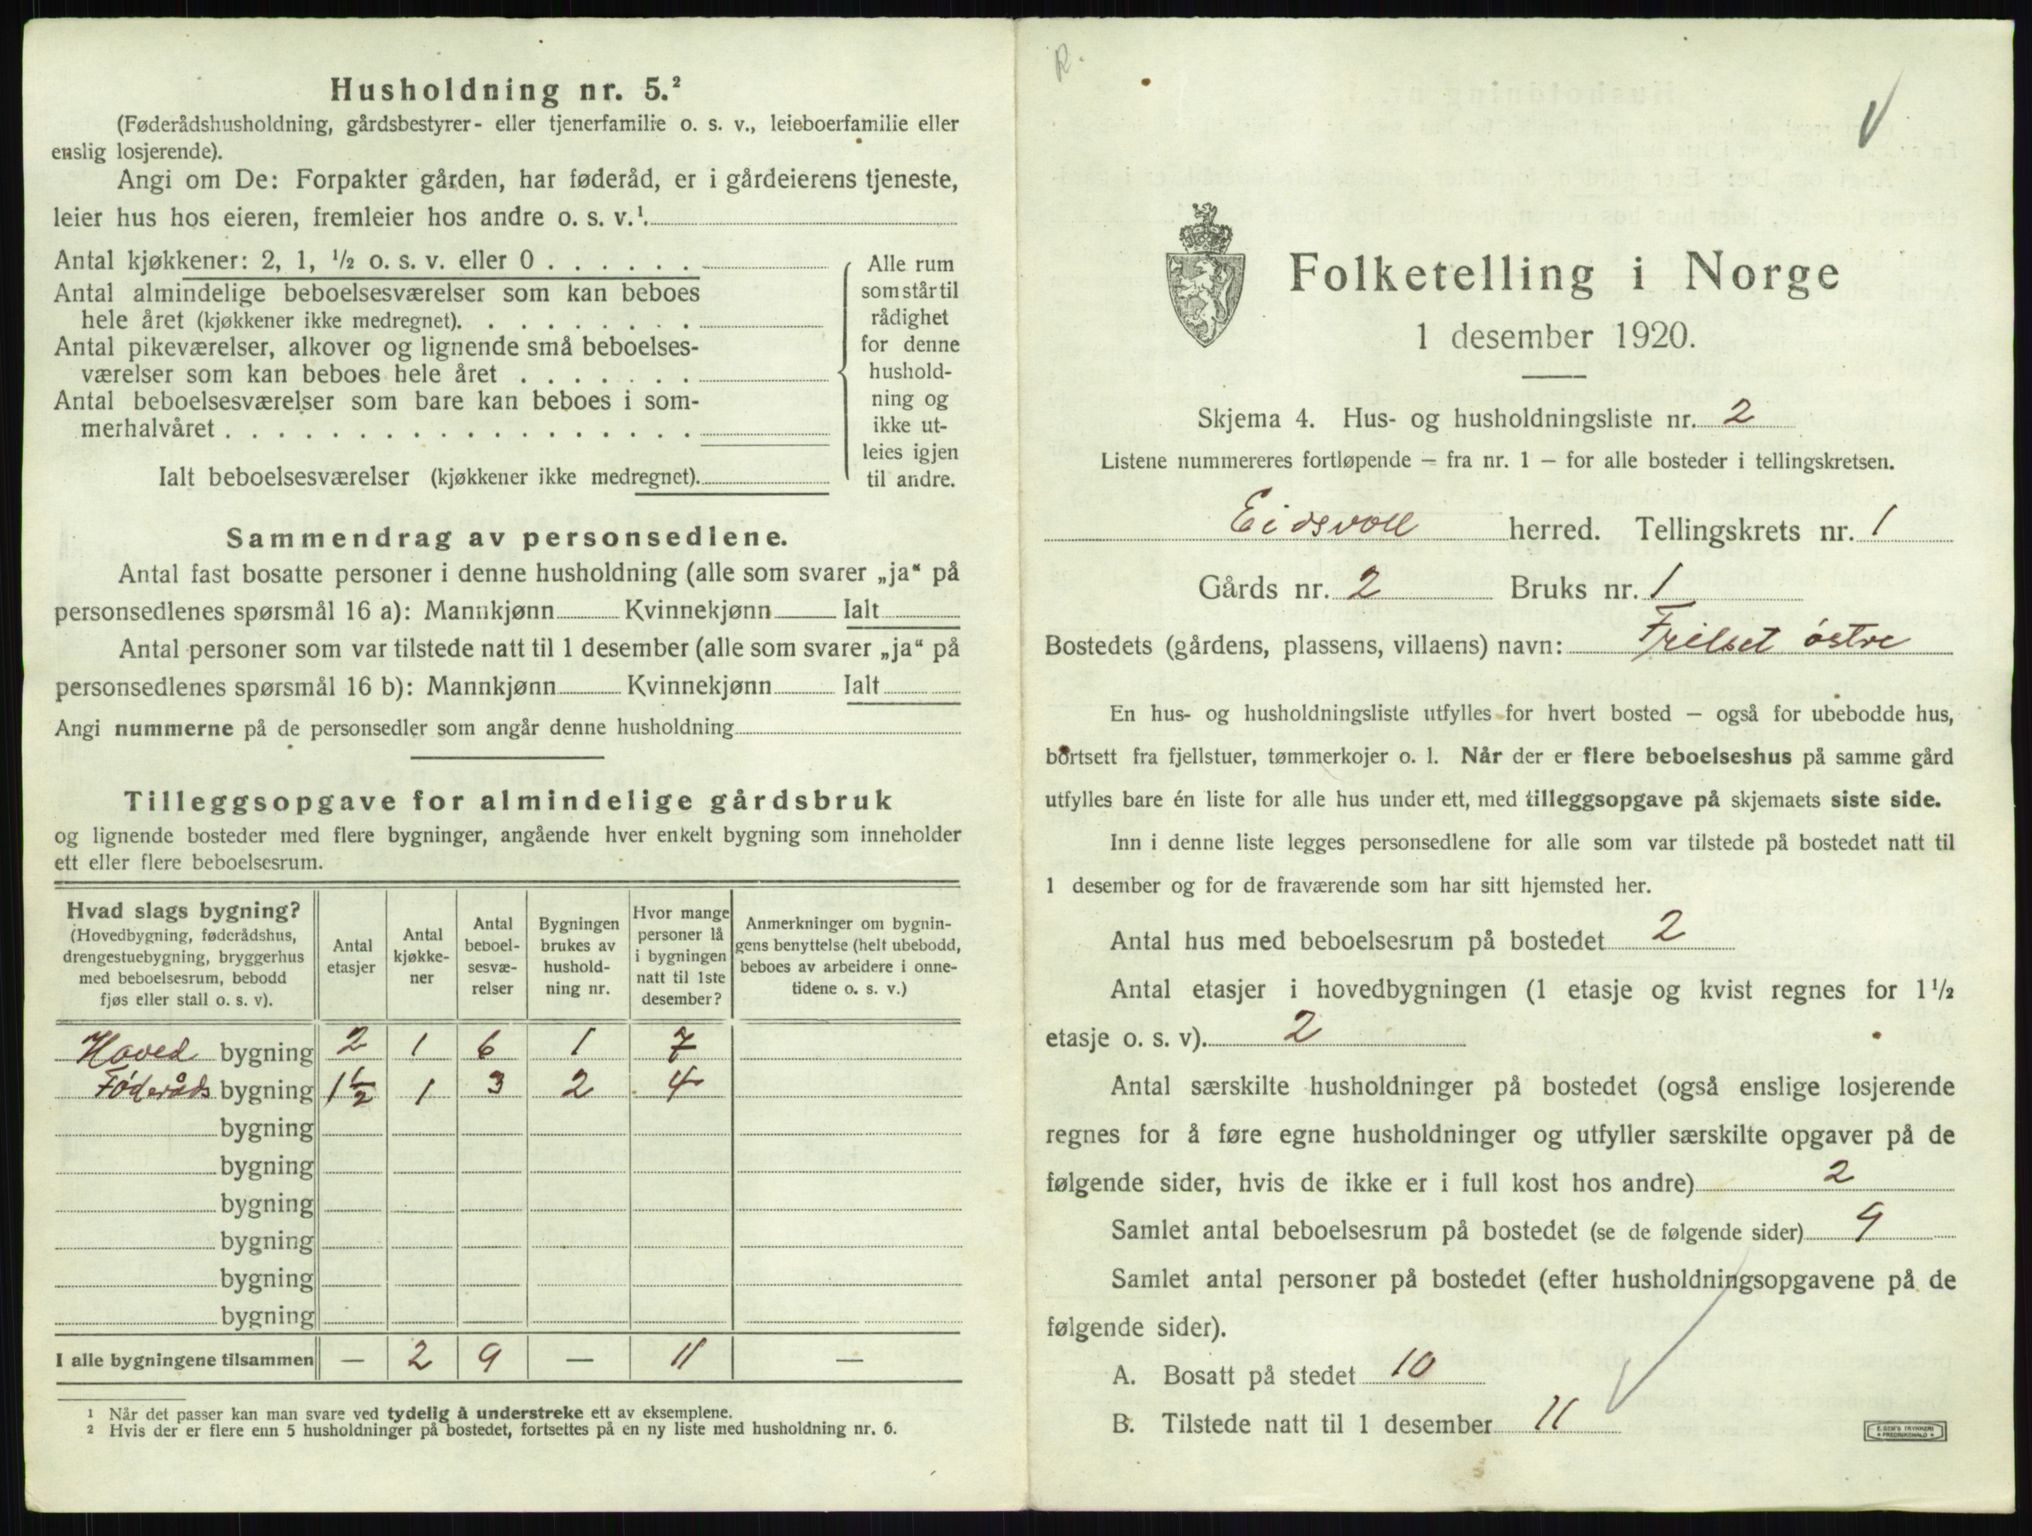 Husholdning nr. 5.²
(Føderådshusholdning, gårdsbestyrer- eller tjenerfamilie o. s. v., leieboerfamilie eller
enslig losjerende).
Angi om De: Forpakter gården, har føderåd, er i gårdeierens tjeneste,
leier hus hos eieren, fremleier hos andre o. s. v.¹
Antal kjøkkener: 2, 1, ½ o. s. v. eller 0
Antal almindelige beboelsesværelser som kan beboes
hele året (kjøkkener ikke medregnet).
Antal pikeværelser, alkover og lignende små beboelses-
værelser som kan beboes hele året
Antal beboelsesværelser som bare kan beboes i som-
merhalvåret
Ialt beboelsesværelser (kjøkkener ikke medregnet).
Alle rum
som står til
rådighet
for denne
hushold-
ning og
ikke ut-
leies igjen
til andre.
Sammendrag av personsedlene.
Antal fast bosatte personer i denne husholdning (alle som svarer „ja“ på
personsedlenes spørsmål 16 a): Mannkjønn Kvinnekjønn Ialt
Antal personer som var tilstede natt til 1 desember (alle som svarer „ja“ på
personsedlenes spørsmål 16 b): Mannkjønn Kvinnekjønn Ialt
Angi nummerne på de personsedler som angår denne husholdning
Tilleggsopgave for almindelige gårdsbruk
og lignende bosteder med flere bygninger, angående hver enkelt bygning som inneholder
ett eller flere beboelsesrum.
Hvad slags bygning?
(Hovedbygning, føderådshus,
drengestuebygning, bryggerhus
med beboelsesrum, bebodd
fjøs eller stall o. s. v).
Antal
etasjer
Antal
kjøkke-
ner
Antal
beboel-
sesvæ-
relser
Bygningen
brukes av
hushold-
ning nr.
Hvor mange
personer lå
i bygningen
natt til 1ste
desember?
Anmerkninger om bygnin-
gens benyttelse (helt ubebodd,
beboes av arbeidere i onne-
tidene o. s. v.)
Hoved bygning 2 1 6 1 7
Føderåds bygning 1½ 1 3 2 4
bygning
bygning
bygning
bygning
bygning
bygning
I alle bygningene tilsammen — 2 9 — 11 —
¹ Når det passer kan man svare ved tydelig å understreke ett av eksemplene.
² Hvis der er flere enn 5 husholdninger på bostedet, fortsettes på en ny liste med husholdning nr. 6.
R.
Folketelling i Norge
1 desember 1920.
Skjema 4. Hus- og husholdningsliste nr. 2
Listene nummereres fortløpende – fra nr. 1 – for alle bosteder i tellingskretsen.
Eidsvoll herred. Tellingskrets nr. 1
Gårds nr. 2 Bruks nr. 1
Bostedets (gårdens, plassens, villaens) navn: Frilset østre
En hus- og husholdningsliste utfylles for hvert bosted – også for ubebodde hus,
bortsett fra fjellstuer, tømmerkojer o. l. Når der er flere beboelseshus på samme gård
utfylles bare én liste for alle hus under ett, med tilleggsopgave på skjemaets siste side.
Inn i denne liste legges personsedlene for alle som var tilstede på bostedet natt til
1 desember og for de fraværende som har sitt hjemsted her.
Antal hus med beboelsesrum på bostedet 2
Antal etasjer i hovedbygningen (1 etasje og kvist regnes for 1½
etasje o. s. v). 2
Antal særskilte husholdninger på bostedet (også enslige losjerende
regnes for å føre egne husholdninger og utfyller særskilte opgaver på de
følgende sider, hvis de ikke er i full kost hos andre) 2
Samlet antal beboelsesrum på bostedet (se de følgende sider) 9
Samlet antal personer på bostedet (efter husholdningsopgavene på de
følgende sider).
A. Bosatt på stedet 10
B. Tilstede natt til 1 desember 11